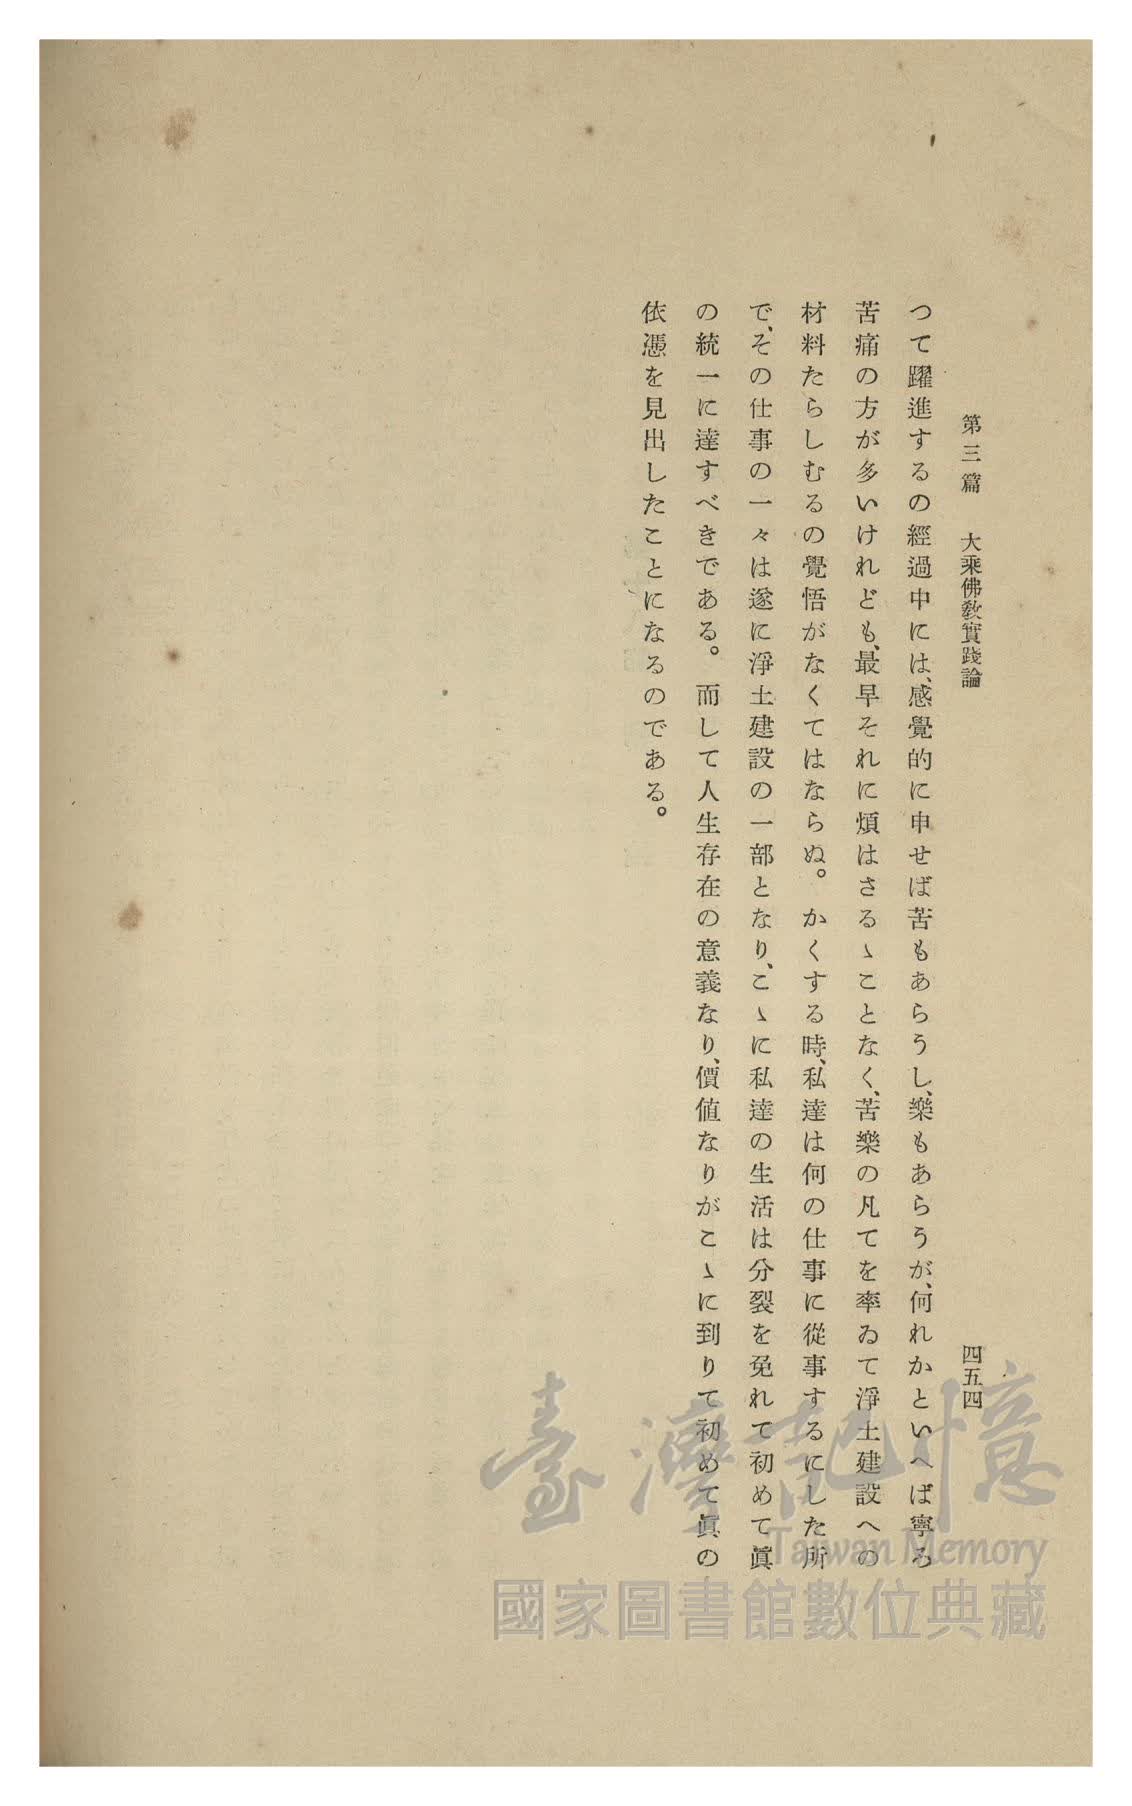 第三篇　大乘佛教實踐論
四五四
つて躍進するの經過中には、感覺的に申せば苦もあらうし、樂もあらうが、何れかといへば寧ろ
苦痛の方が多いけれども、最早それに煩はさるゝことなく、苦樂の凡てを率ゐて淨土建設への
材料たらしむるの覺悟がなくてはならぬ。かくする時、私達は何の仕事に從事するにした所
で、その仕事の一々は遂に淨土建設の一部となり、こゝに私達の生活は分裂を免れて初めて眞
の統一に達すべきである。而して人生存在の意義なり、價値なりがこゝに到りて初めて眞の
依憑を見出したことになるのである。
臺灣記憶
Taiwan Memory
國家圖書館數位典藏